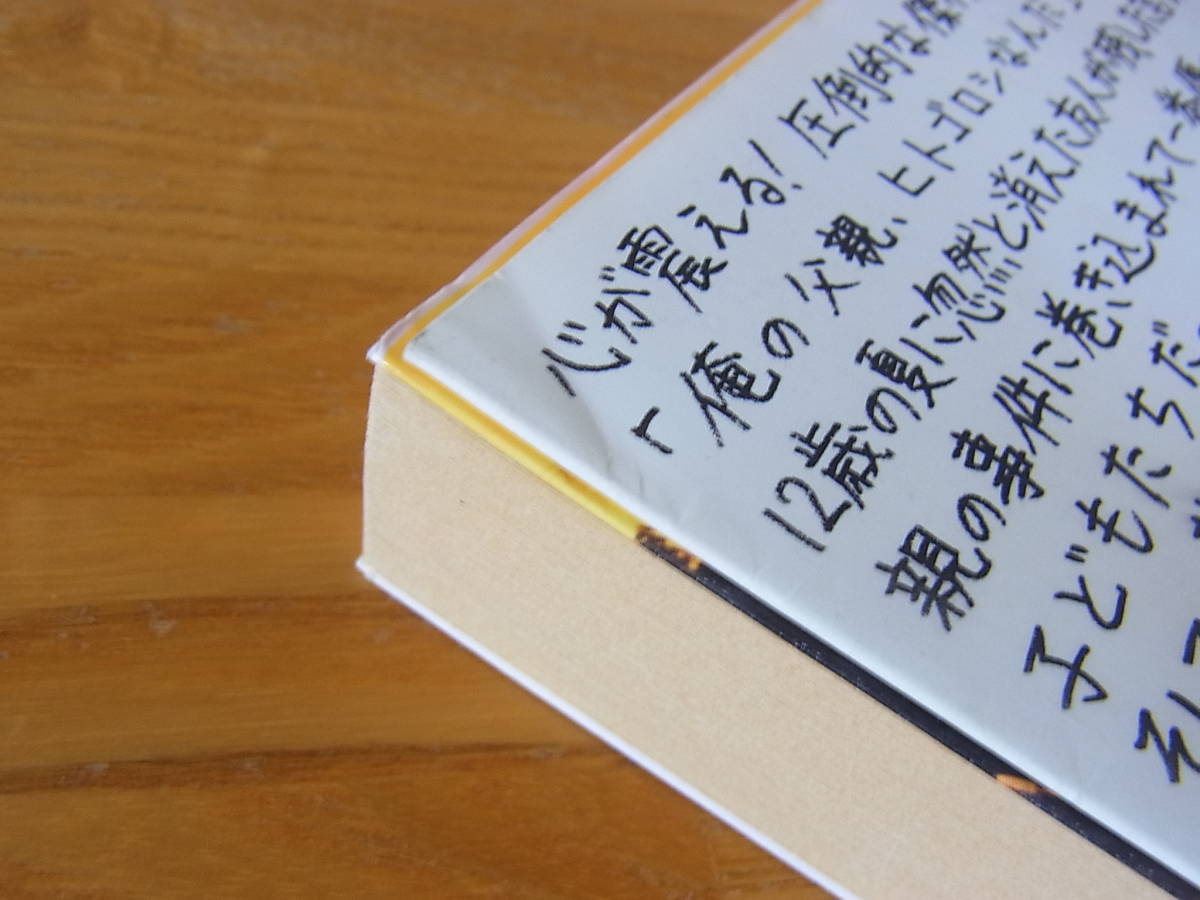 心が震える!圧倒的な傑
「俺の父親、ヒトゴロシなんだ
12歳の夏に忽然と消えた友人が残した
親の事件に巻き込まれて一巻
子どもたちだ
そ